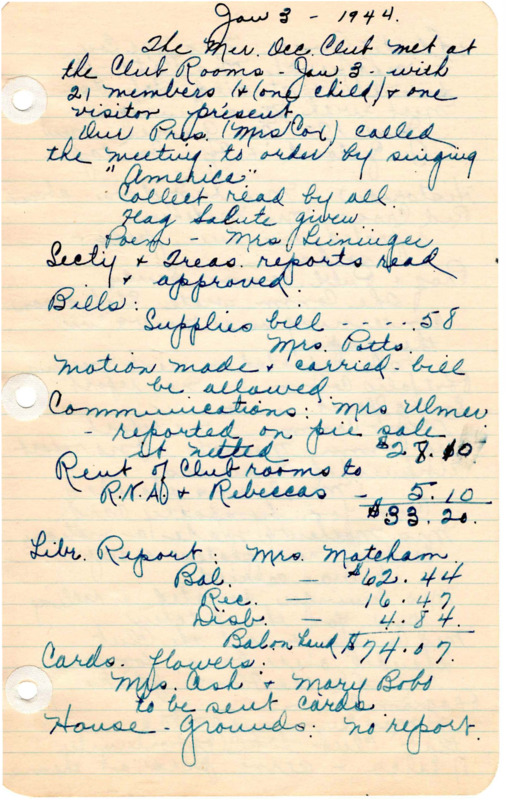 Jan 3 - 1944.
The Mer. Dec. Club met at
the Club Rooms - Jan 3 - with
21 members (& (one child) & one
visitor present.
Our Pres. (Mrs Cox) called
the meeting to order by singing
"America"
Collect read by all.
Flag Salute given
Poem - Mrs Leininger
Secty & Treas. reports read
& approved.
Bills:
Supplies bill - - - - . . 58
Mrs. Potts.
Motion made & carried - bill
be allowed.
Communications: Mrs Ulmer
- reported on pie sale
It netted $28.10
Rent of Club rooms to
R.N.A. & Rebeccas - 5.10
$33.20.
Libr. Report: Mrs. Matcham
Bal. - $62.44
Rec. - 16.47
Disb. - 4.84.
Bal on hand $74.07.
Cards. flowers:
Mrs. Ash & Mary Bobo
to be sent cards
House - Grounds: no report.